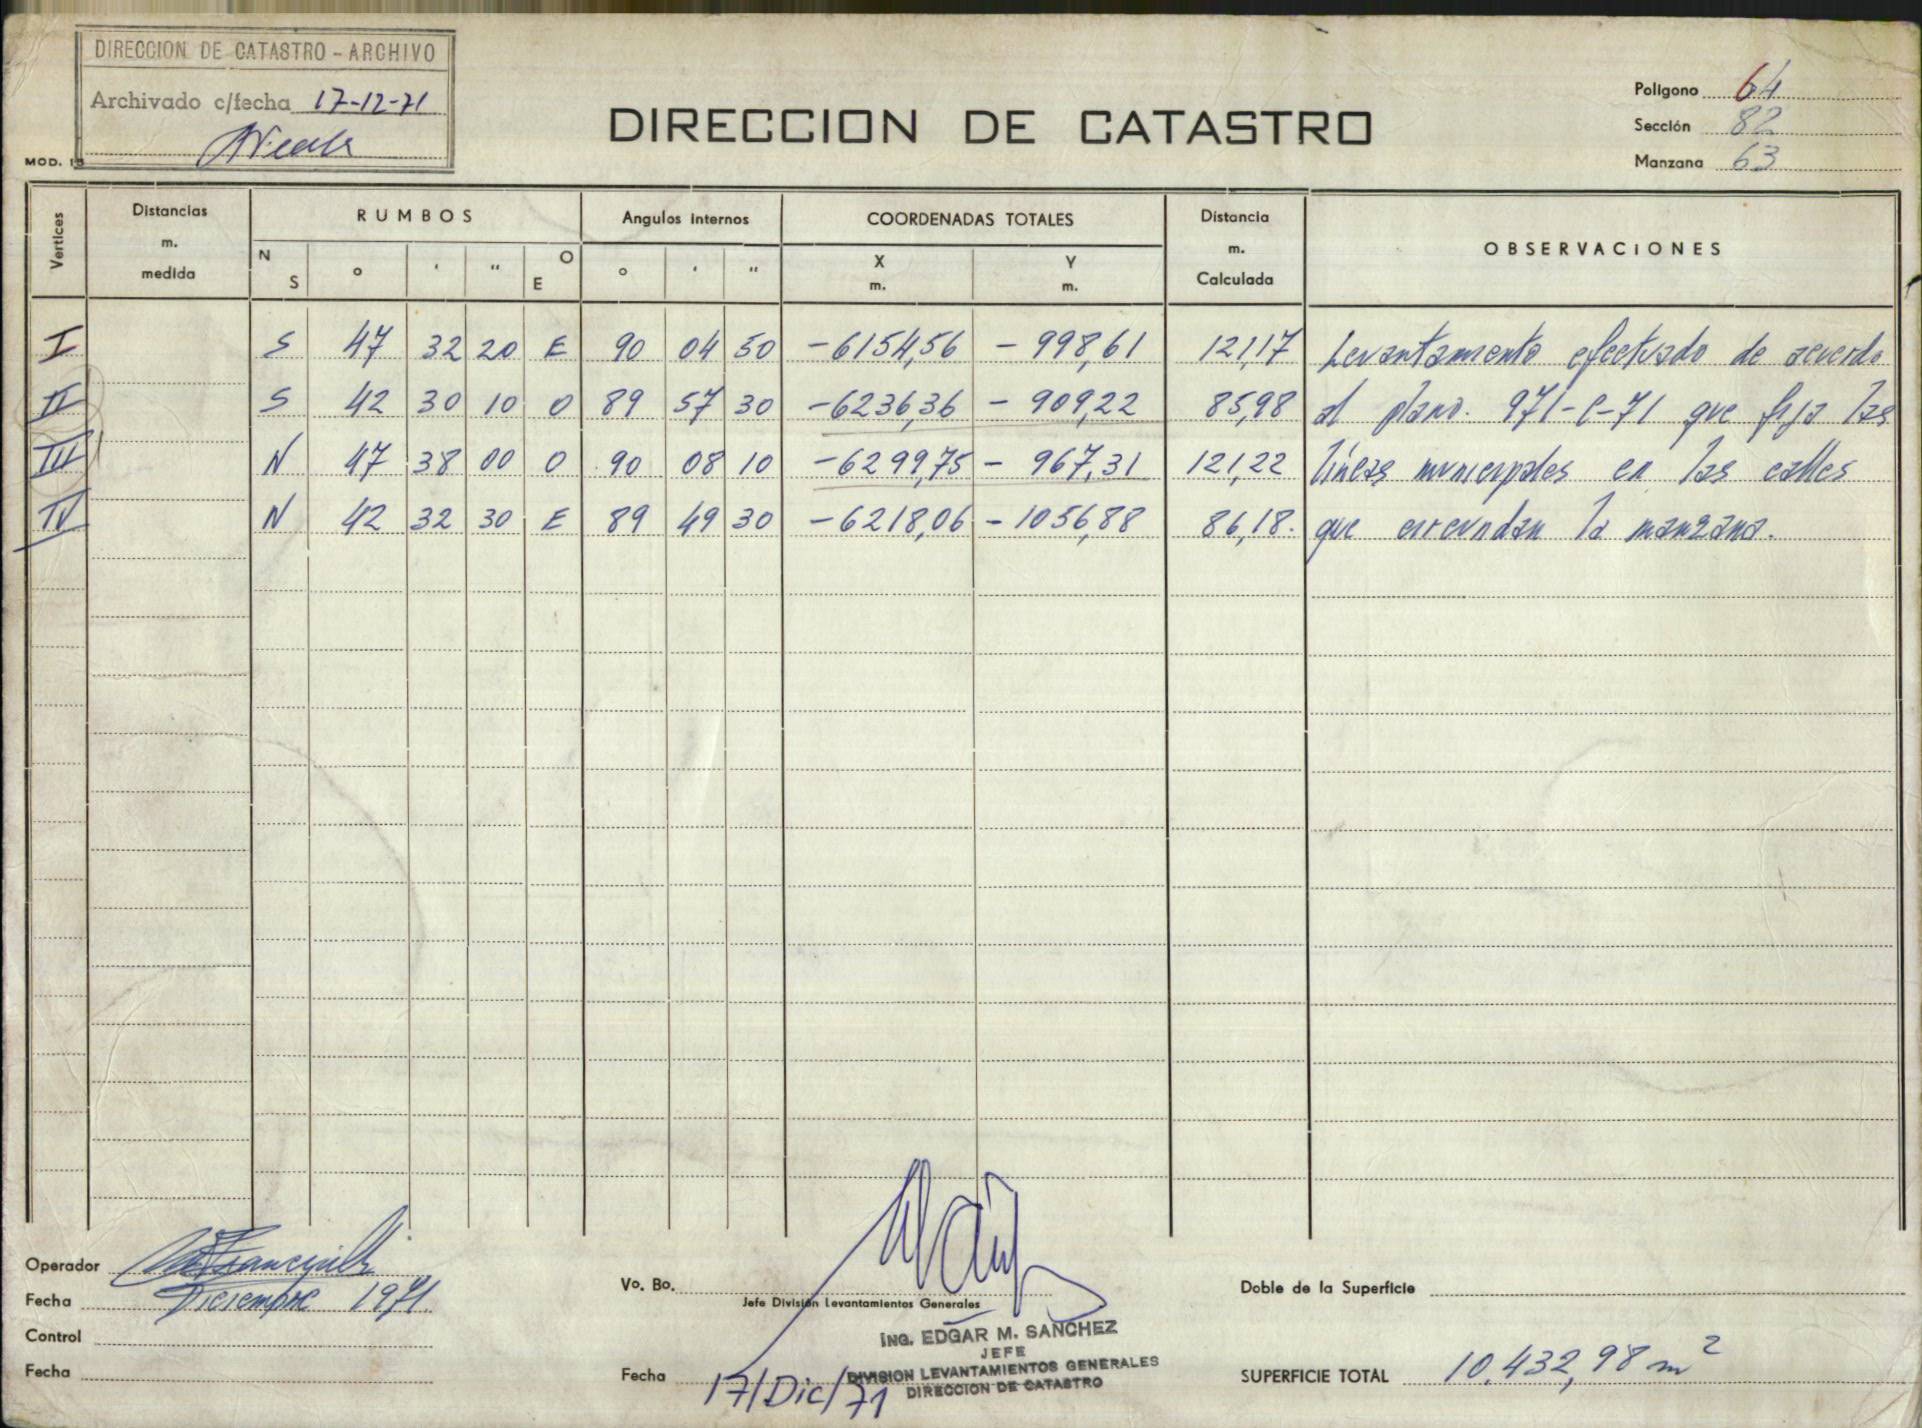 DIRECCION DE CATASTRO - ARCHIVO
Archivado c/fecha 17-12-71
MOD. 13
DIRECCION DE CATASTRO
Polígono 64
Sección 82
Manzana 63
Vertices Distancias m. medida RUMBOS Angulos internos COORDENADAS TOTALES Distancia m. Calculada OBSERVACIONES
N S ° ' " O E ° ' " X m. Y m.
I S 47 32 20 E 90 04 50 -6154,56 - 998,61 121,17 Levantamiento efectuado de acuerdo
II S 42 30 10 O 89 57 30 -6236,36 - 909,22 85,98 al plano. 971-C-71 que fija las
III N 47 38 00 O 90 08 10 -6299,75 - 967,31 121,22 líneas municipales en las calles
IV N 42 32 30 E 89 49 30 -6218,06 - 1056,88 86,18. que circundan la manzana.
Operador
Fecha Diciembre 1971
Control
Fecha
Vo. Bo.
Jefe División Levantamientos Generales
ING. EDGAR M. SANCHEZ
JEFE
DIVISION LEVANTAMIENTOS GENERALES
DIRECCION DE CATASTRO
Fecha 17/Dic/71
Doble de la Superficie
SUPERFICIE TOTAL 10.432,98 m²